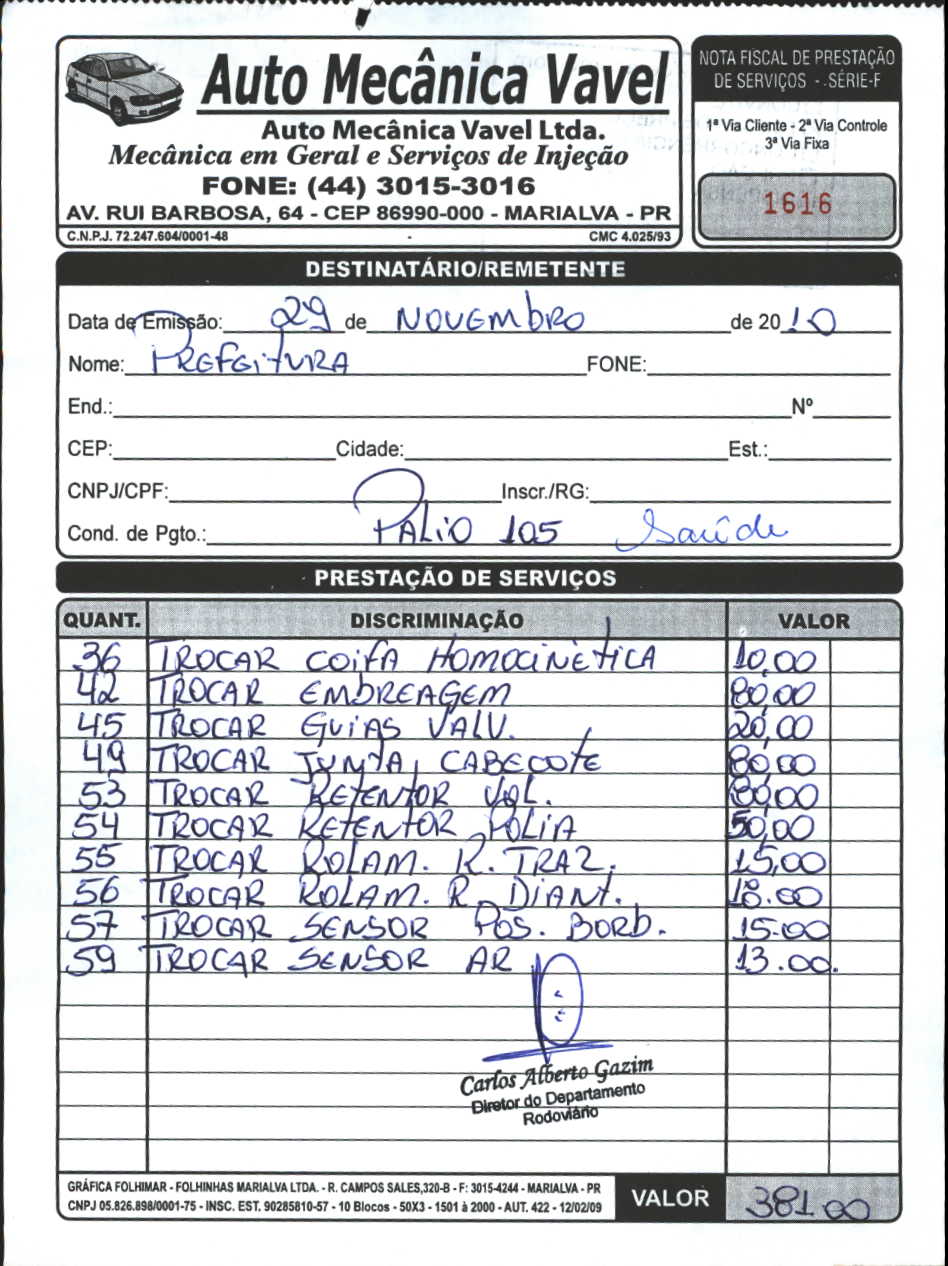 Auto Mecânica Vavel
Auto Mecânica Vavel Ltda.
Mecânica em Geral e Serviços de Injeção
FONE: (44) 3015-3016
AV. RUI BARBOSA, 64 - CEP 86990-000 - MARIALVA - PR
C.N.P.J. 72.247.604/0001-48 CMC 4.025/93
NOTA FISCAL DE PRESTAÇÃO
DE SERVIÇOS - SÉRIE-F
1ª Via Cliente - 2ª Via Controle
3ª Via Fixa
1616
DESTINATÁRIO/REMETENTE
Data de Emissão: 29 de NOVEMBRO de 2010
Nome: PREFEITURA FONE:
End.: Nº
CEP: Cidade: Est.:
CNPJ/CPF: Inscr./RG:
Cond. de Pgto.: PALIO 105 Saúde
PRESTAÇÃO DE SERVIÇOS
QUANT. DISCRIMINAÇÃO VALOR
36 TROCAR COIFA HOMOCINÈTICA 10,00
42 TROCAR EMBREAGEM 80,00
45 TROCAR GUIAS VALV. 20,00
49 TROCAR JUNTA CABEÇOTE 80,00
53 TROCAR RETENTOR VOL. 80,00
54 TROCAR RETENTOR POLIA 50,00
55 TROCAR ROLAM. R. TRAZ. 15,00
56 TROCAR ROLAM. R. DIANT. 18.00
57 TROCAR SENSOR POS. BORB. 15.00
59 TROCAR SENSOR AR 13.00.
Carlos Alberto Gazim
Diretor do Departamento
Rodoviário
GRÁFICA FOLHIMAR - FOLHINHAS MARIALVA LTDA. - R. CAMPOS SALES,320-B - F: 3015-4244 - MARIALVA - PR
CNPJ 05.826.898/0001-75 - INSC. EST. 90285810-57 - 10 Blocos - 50X3 - 1501 à 2000 - AUT. 422 - 12/02/09
VALOR 381.00